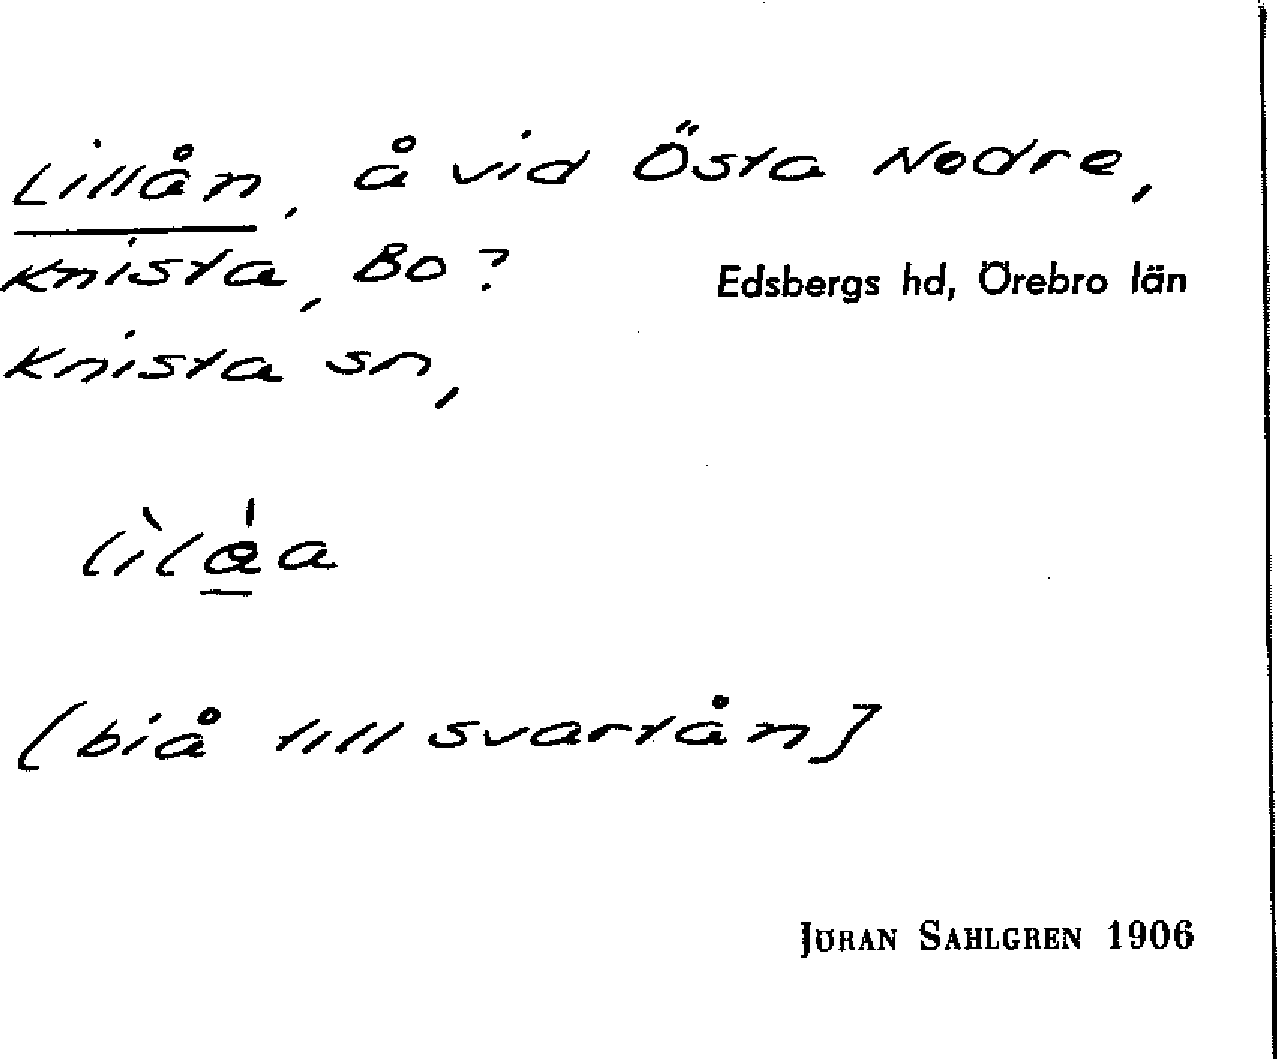 Lillån, å vid Östa Nedre,
Knista, Bo?
Edsbergs hd, Örebro län
Knista sn,
lìlǻ̱a
(biå till svartån]
JÖRAN SAHLGREN 1906